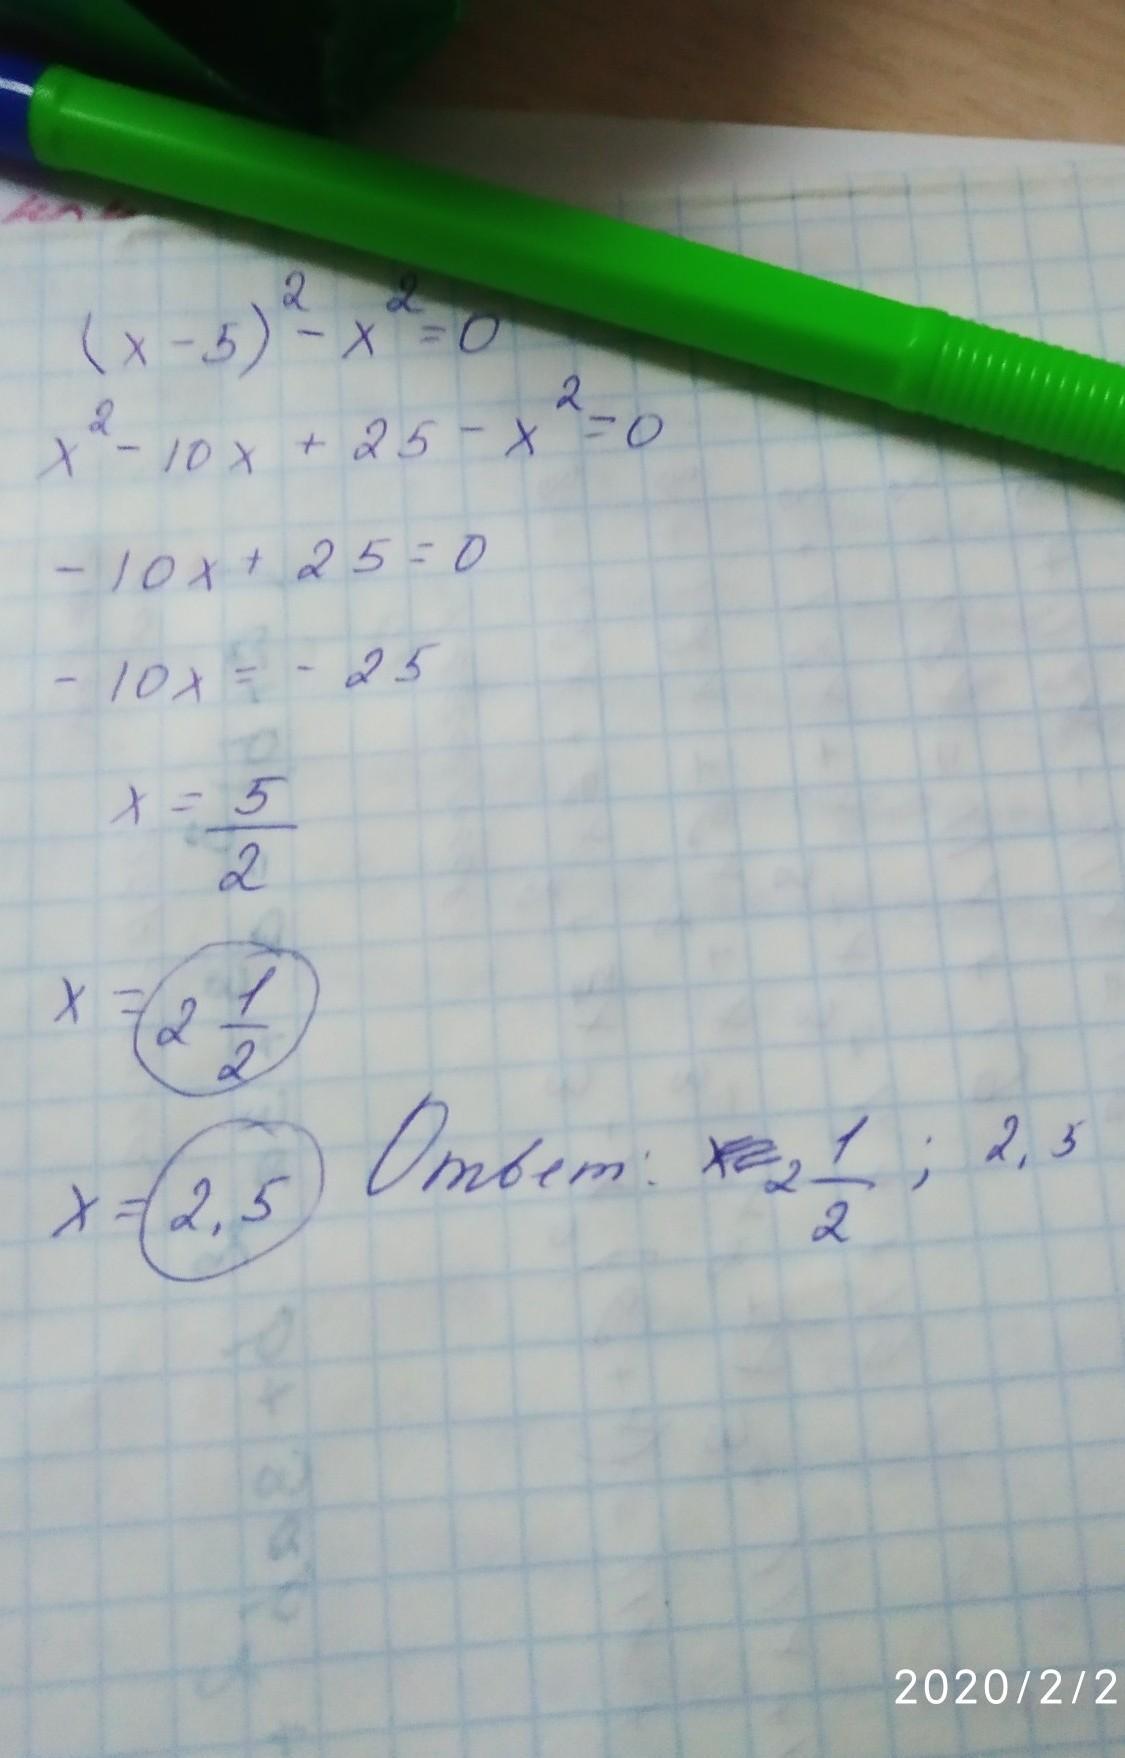 (x-5)²-x²=0
x²-10x+25-x²=0
-10x+25=0
-10x=-25
x=5/2
x=2 1/2
x=2,5 Ответ: 2 1/2; 2,5
2020/2/2